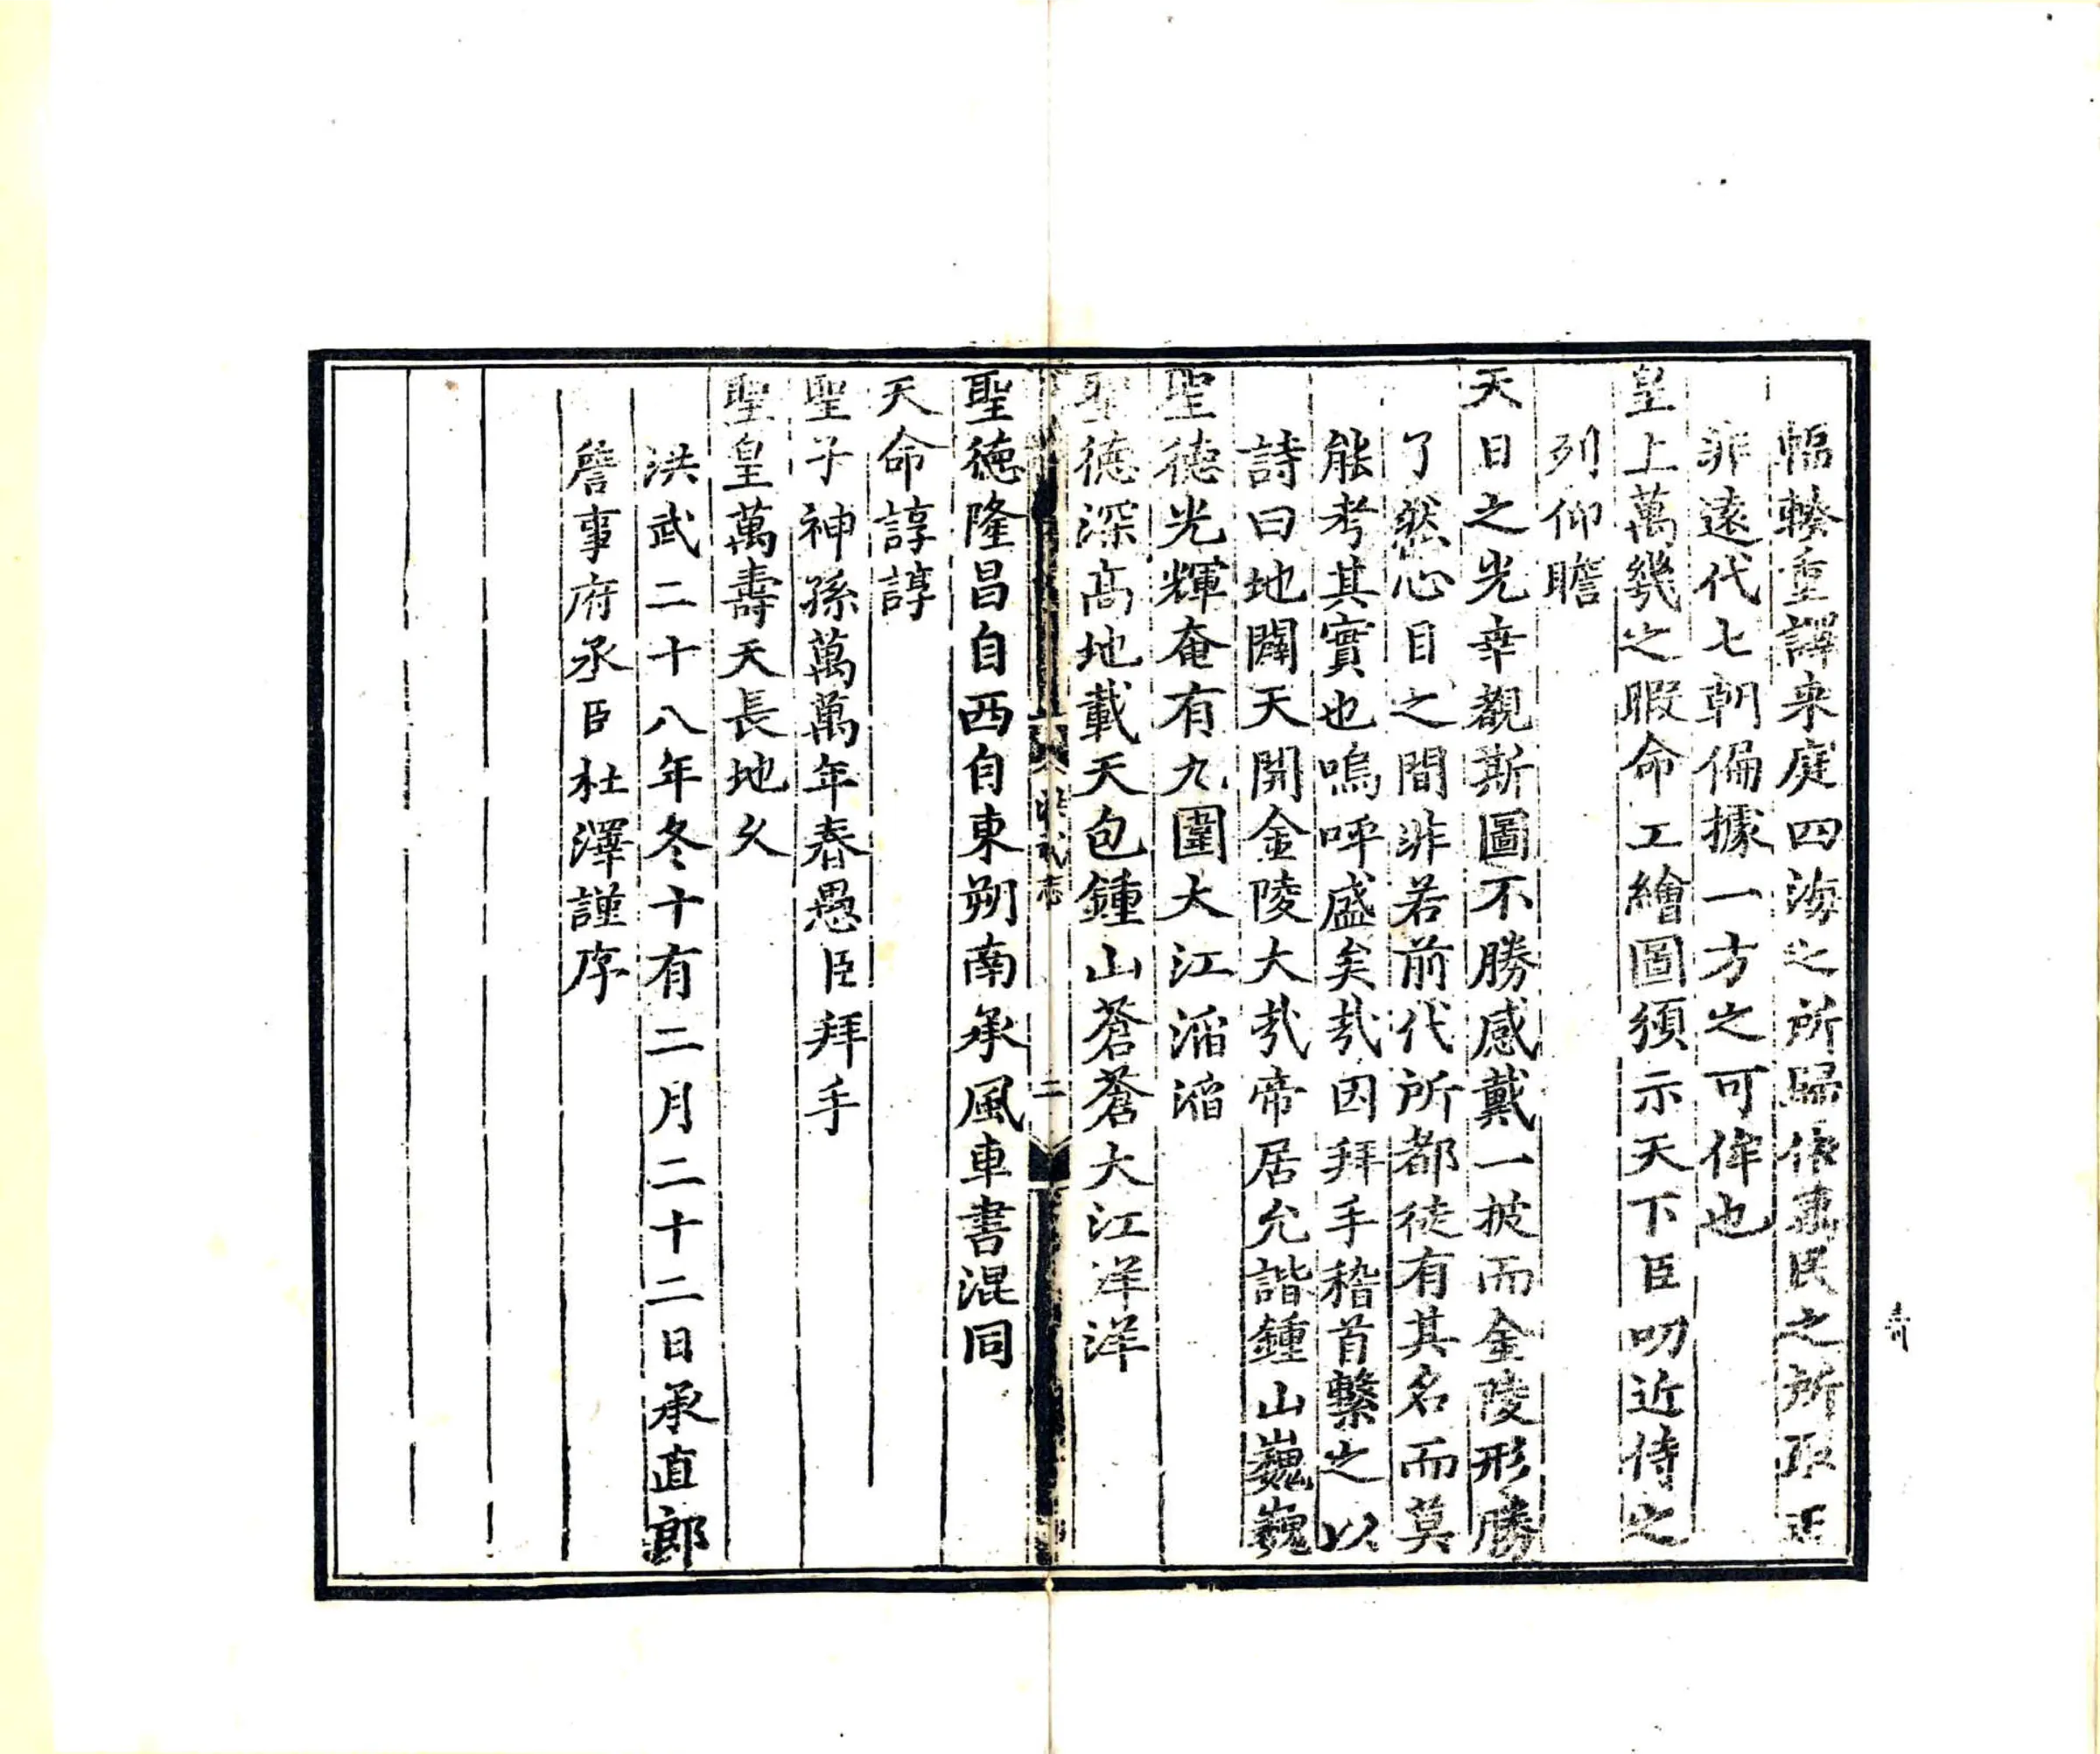 輻輳重譯来庭四海之所歸依萬民之所取正
非遠代七朝偏據一方之可侔也
皇上萬幾之暇命工繪圖頒示天下臣叨近侍之
列仰瞻
天日之光幸觀斯圖不勝感戴一披而金陵形勝
了然心目之間非若前代所都徒有其名而莫
能考其實也嗚呼盛矣㢤因拜手稽首繫之以
詩曰地闢天開金陵大㢤帝居允諧鍾山巍巍
聖德光輝奄有九圍大江滔滔
聖德深高地載天包鍾山蒼蒼大江洋洋
志
二
聖德隆昌自西自東朔南承風車書混同
天命諄諄
聖子神孫萬萬年春愚臣拜手
聖皇萬壽天長地久
洪武二十八年冬十有二月二十二日承直郎
詹事府丞臣杜澤謹序